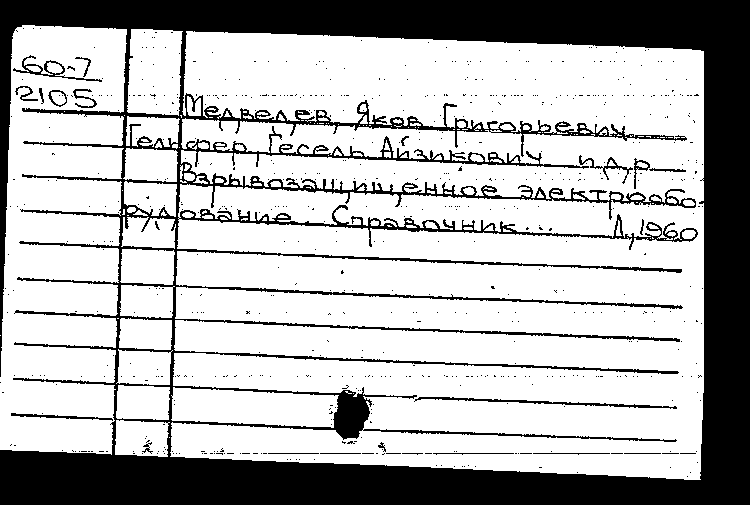 60-7
2105
Медведев, Яков Григорьевич
Гельфер, Гесель Айзикович и др
Взрывозащищенное электрообо-
рудование. Справочник... Л, 1960